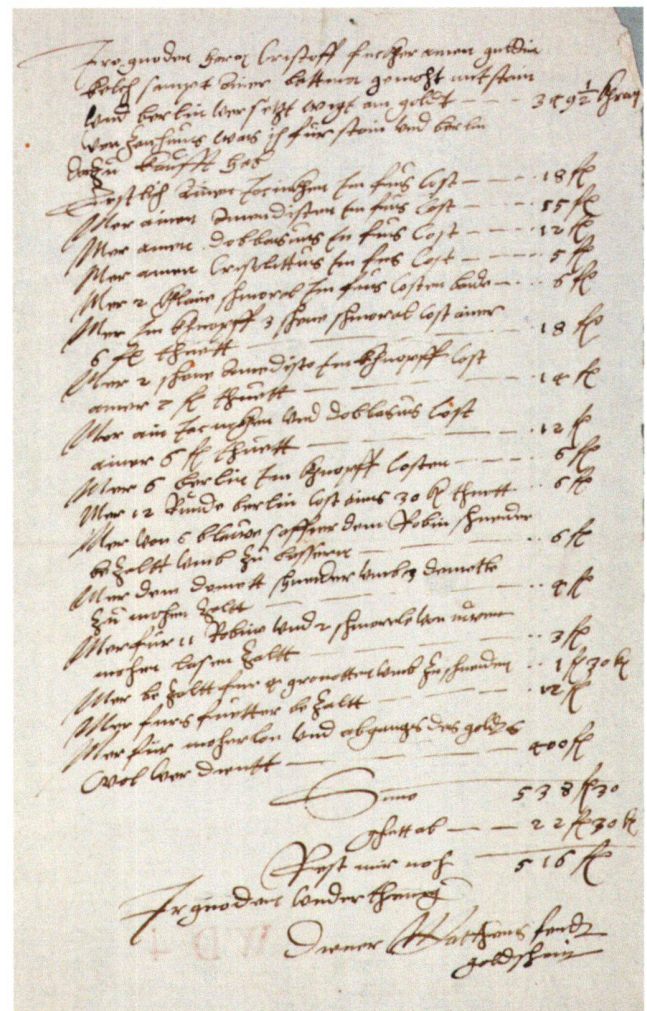 Ire gnoden herrn Cristoff fuckher ainen guldin
kelch sampt ainer bettnen gemacht mit stain
und berlin versetzt wigt an goldt — — — 349½ khron
was ich für stain und berlin
dazu kaufft hab
Erstlich ainen Jacinkhen Im fus Cost — — — 18 fl
Mer ainen Amedisten Im fus Cost — — — 55 fl
Mer ainen dobbasius Im fus Cost — — — 12 fl
Mer ainen Crisolittus Im fus Cost — — — 5 fl
Mer 2 klaine schmaral Im fus Costen baide — — 6 fl
Mer Im khnopff 3 schene schmaral cost ainer
6 fl thuett — — — 18 fl
Mer 2 schene Amediste Im khnopff cost
ainer 7 fl thuett — — — 14 fl
Mer ain Jacinkhen und dobbasius Cost
ainer 6 fl thuett — — — 12 fl
Mer 6 berlin Im khnopff Costen — — — 6 fl
Mer 12 Runde berlin cost ains 30 kr thuett — 6 fl
Mer von 6 blawe saffier dem Robin schneider
bezaltt umb zu bessern — — — 6 fl
Mer dem demett schneider umb 3 demette
zu machen zaltt — — — 4 fl
Mer für 11 Robin und 2 schmarele von
machen lasen zaltt — — — 3 fl
Mer bezaltt fur 4 gronotten umb zu schneiden — 1 fl 30 kr
Mer furs fuetter bezaltt — — — 12 fl
Mer für macherlon und abgangs des goldts
wol verdientt — — — 400 fl
Sumo 538 fl 30
Ghett ab — — — 22 fl 30 kr
Rest mir noch 516 fl
Ir gnoden underthenig
Diener Matheus fendt
goldschmit